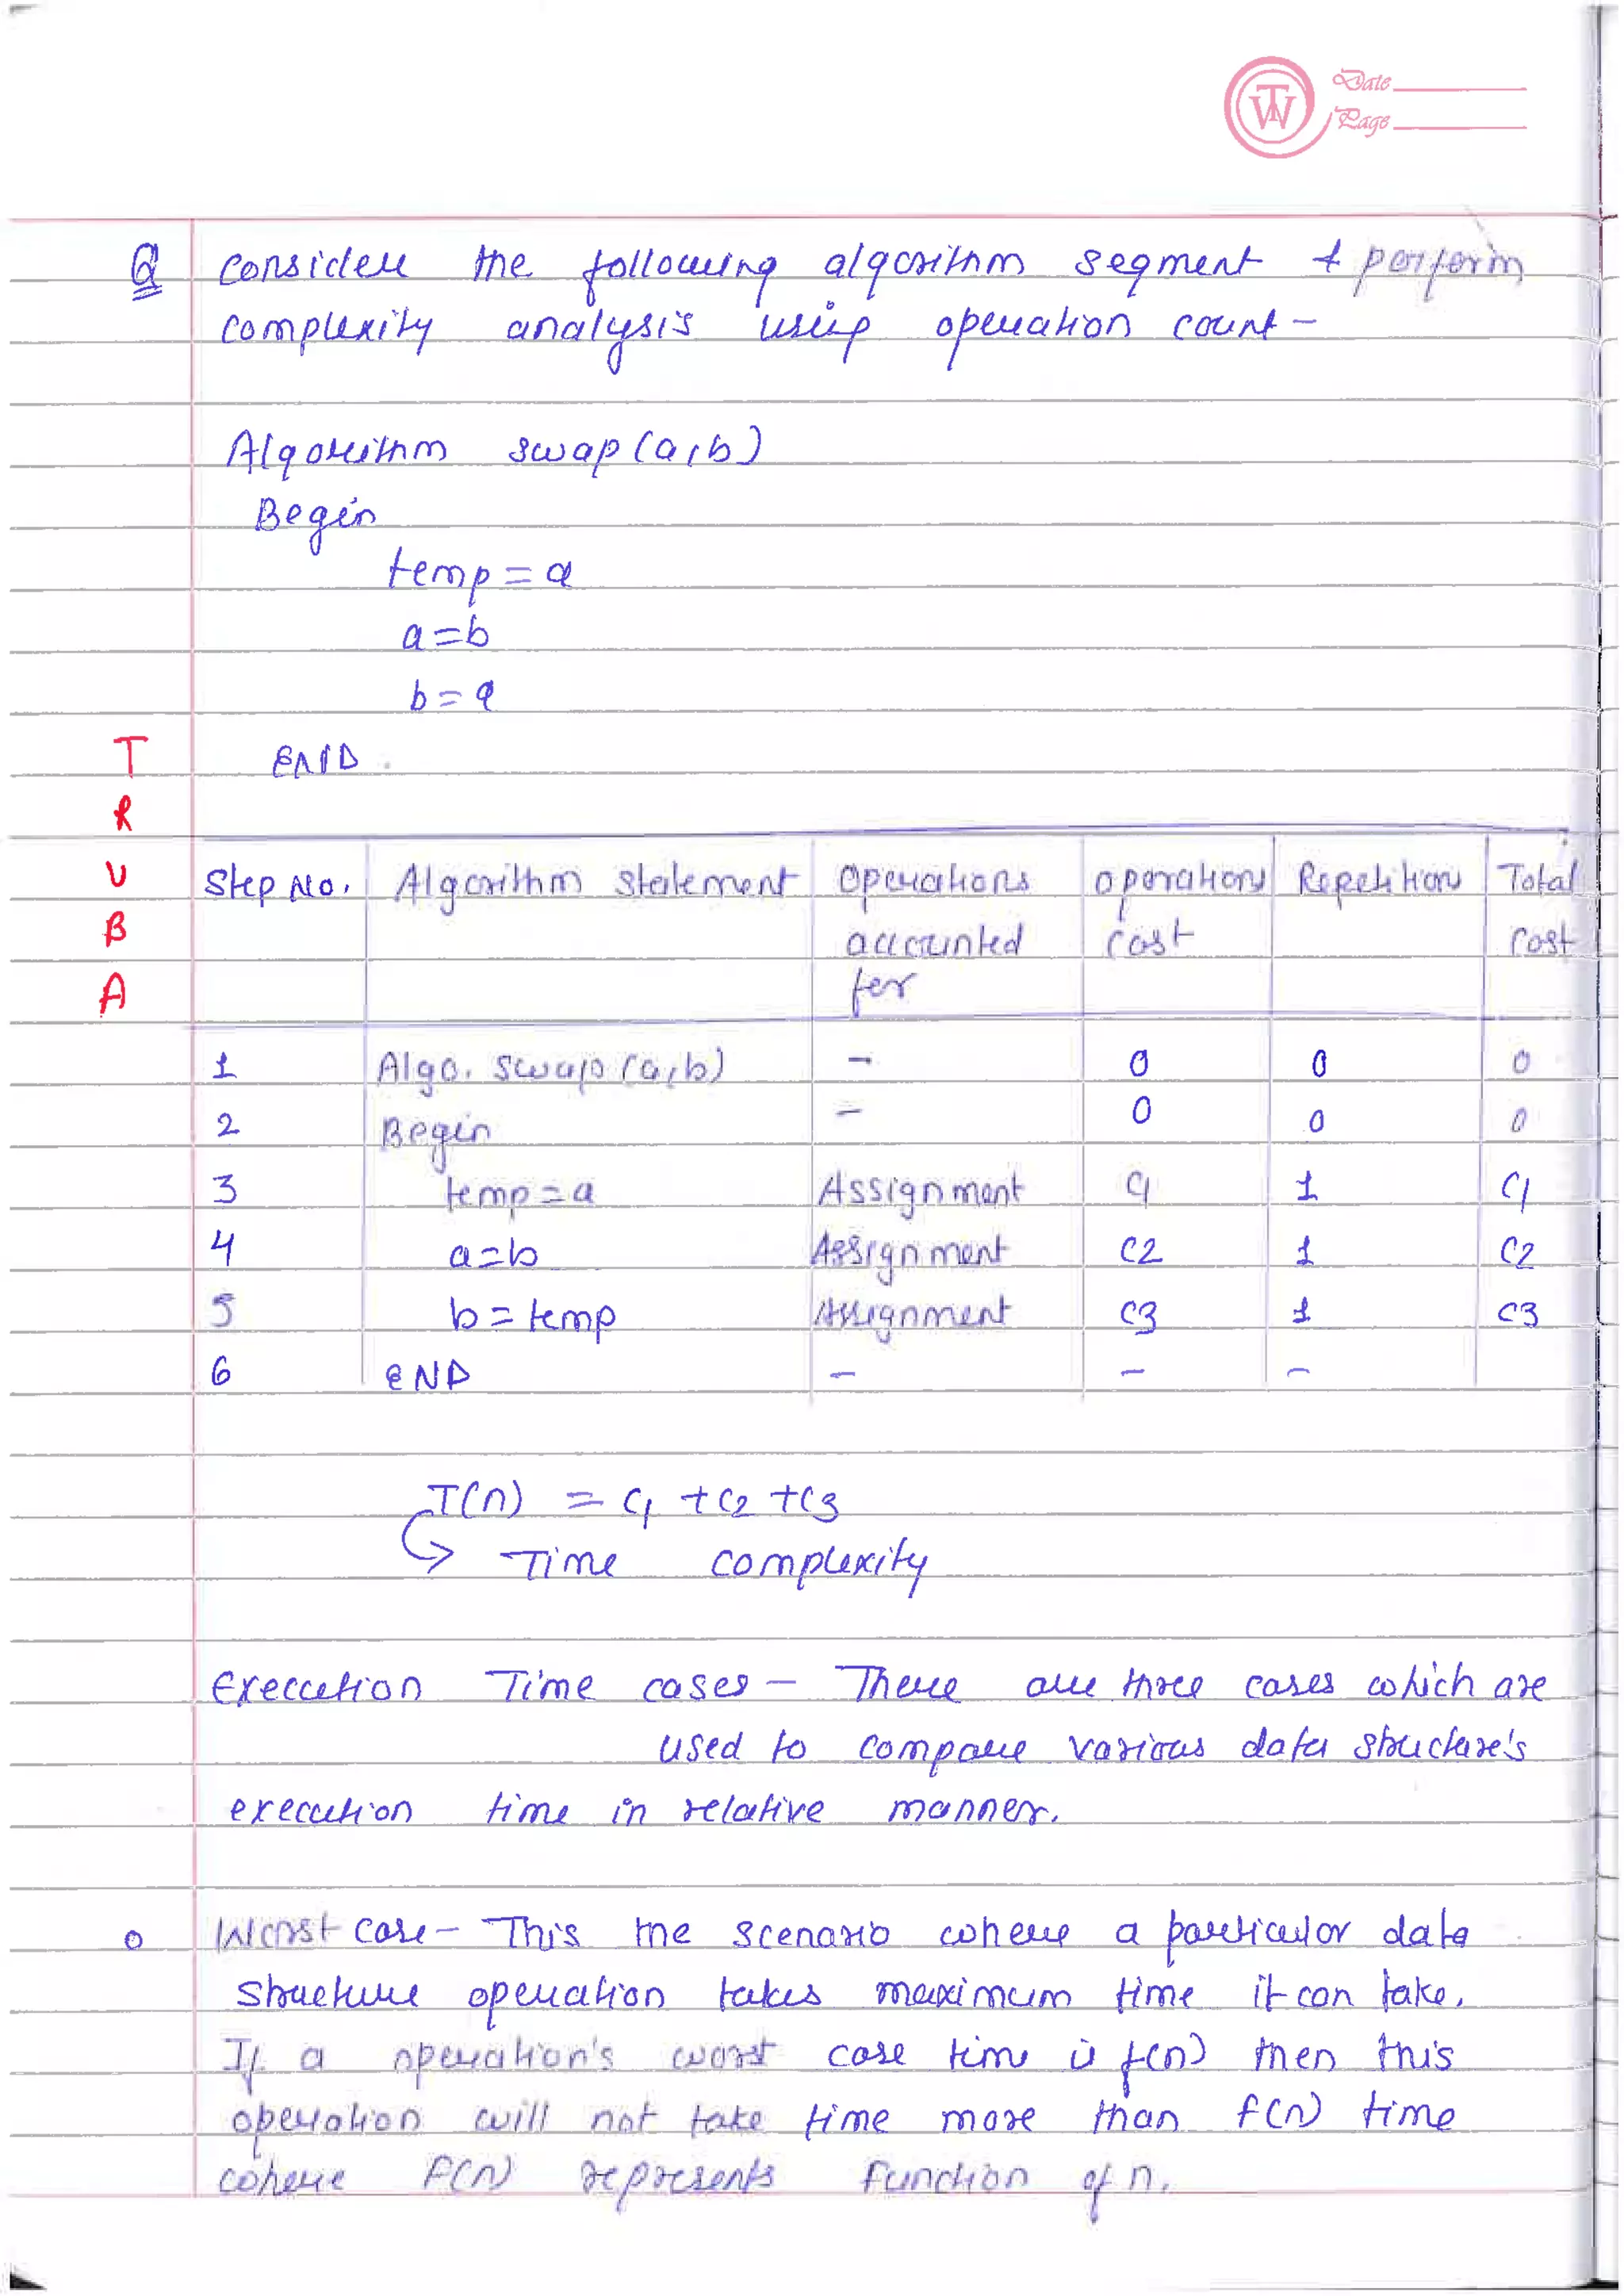 Date
Page
Q consider the following algorithm segment & perform
complexity analysis using operation count -
Algorithm swap (a,b)
Begin
temp = a
a = b
b = a
END.
T
R
U
B
A
Step No. Algorithm statement Operations operations Repetitions Total
accounted cost Cost
for
1 Algo. Swap (a,b) - 0 0 0
2 Begin - 0 0 0
3 temp = a Assignment C1 1 C1
4 a = b Assignment C2 1 C2
5 b = temp Assignment C3 1 C3
6 END - - -
T(n) = C1 + C2 + C3
Time complexity
Execution Time cases - There are three cases which are
used to compare various data structure's
execution time in relative manner.
Worst case - This the scenario where a particular data
structure operation takes maximum time it can take.
If a operation's worst case time is f(n) then this
operation will not take time more than f(n) time
where f(n) represents function of n.